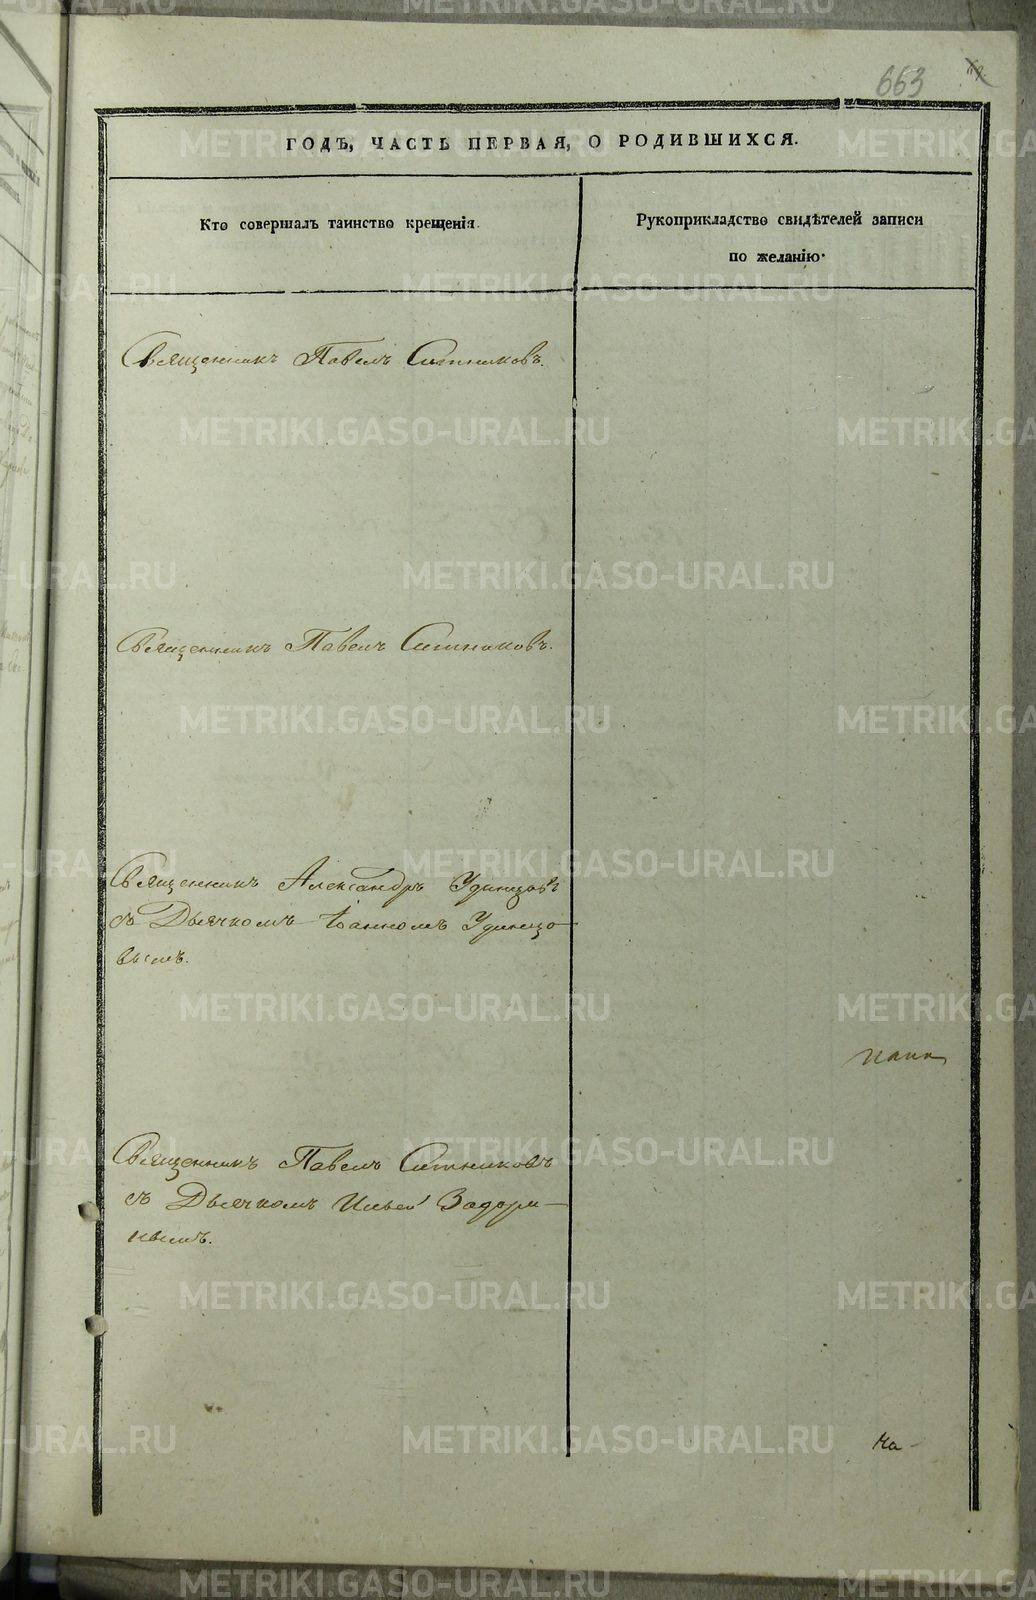 663
ГОДЪ, ЧАСТЬ ПЕРВАЯ, О РОДИВШИХСЯ.
Кто совершалъ таинство крещенія.
Рукоприкладство свидѣтелей записи
по желанію.
Священникъ Павелъ Ситниковъ.
Священникъ Павелъ Ситниковъ.
Священникъ Александръ Удинцовъ
съ Дьячкомъ Іоанномъ Удинцо
вымъ.
Священникъ Павелъ Ситниковъ
съ Дьячкомъ Ильей Задори-
нымъ.
На-
METRIKI.GASO-URAL.RU